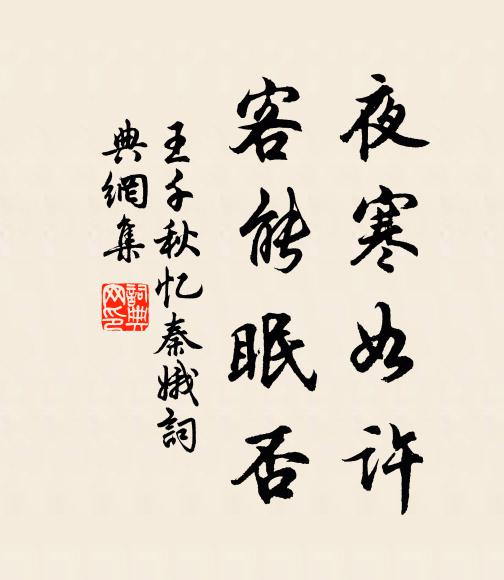 夜寒如许
客能眠否
王千秋忆秦娥詞
典網集
詞典网印